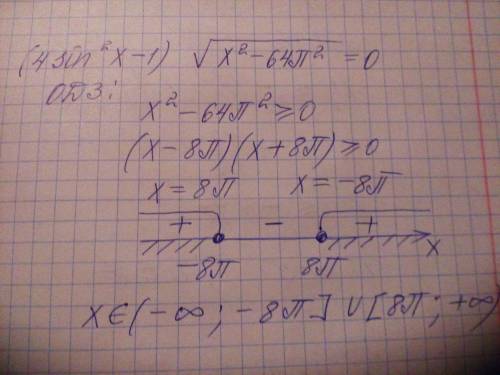 (4sin²x-1) √(x²-64π²) = 0
ОДЗ:
x²-64π² ⩾ 0
(x-8π)(x+8π) ⩾ 0
x=8π x=-8π
+ - +
-8π 8π x
x∈(-∞; -8π] ∪ [8π; +∞)